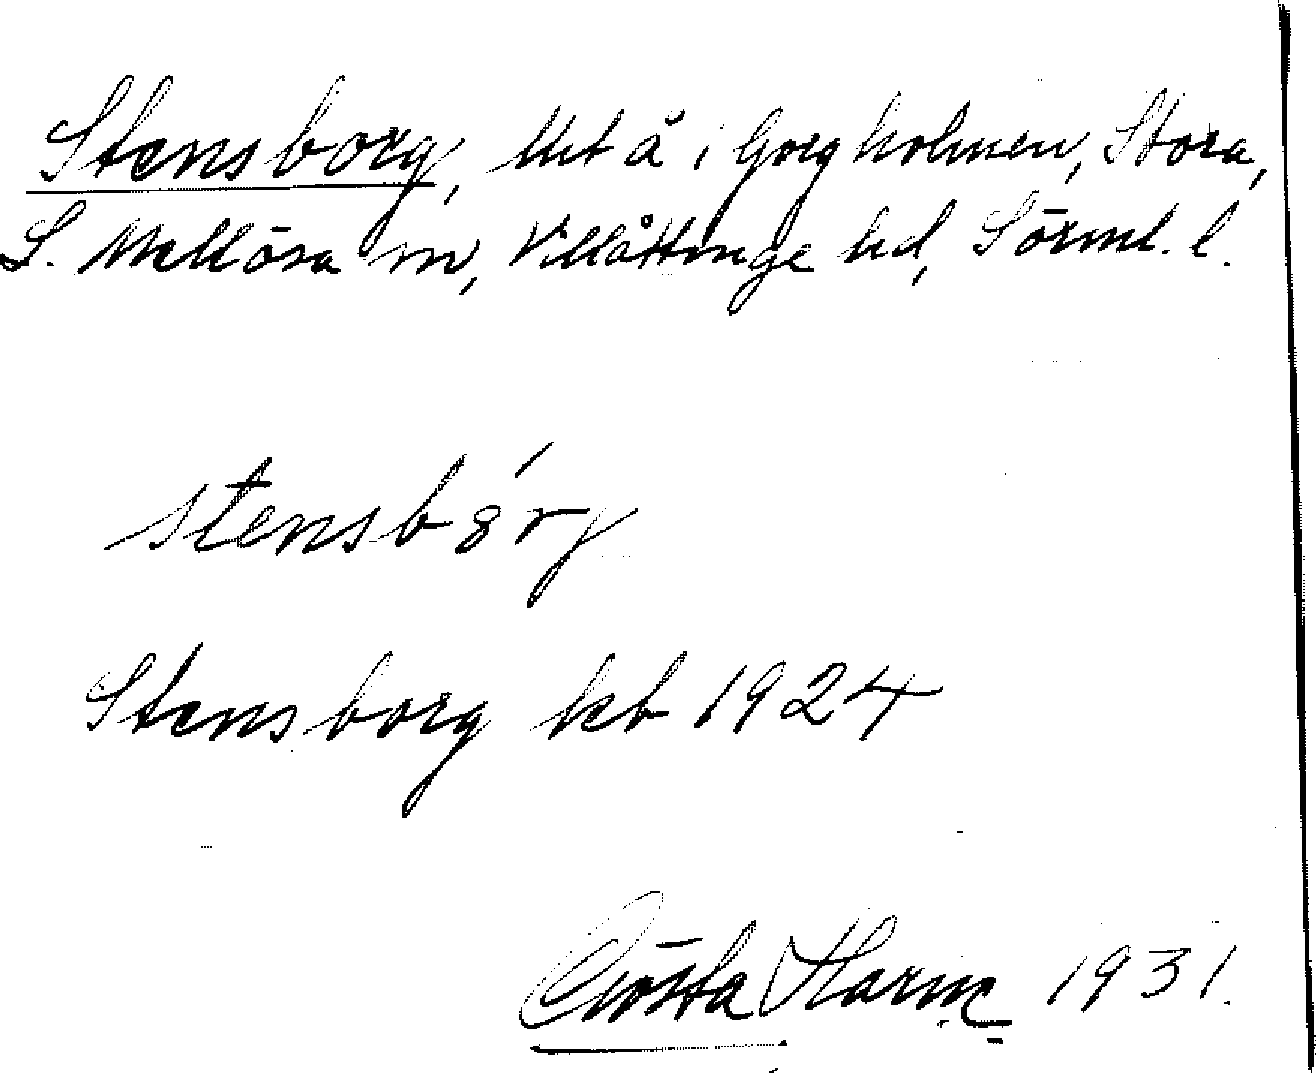 Stensborg, lht å i Gorgholmen, Stora,
S. Mellösa sn, Villåttinge hd, Sörml. l.
stensbórj
Stensborg kb 1924
Gösta 1931.